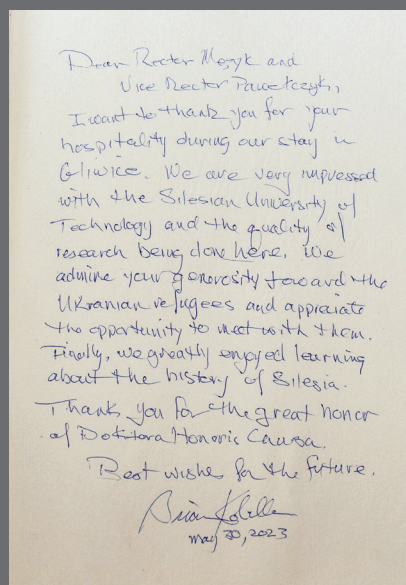 Dear Rector Mężyk and
Vice Rector Pawełczyk,
I want to thank you for your
hospitality during our stay in
Gliwice. We are very impressed
with the Silesian University of
Technology and the quality of
research being done here. We
admire your generosity toward the
Ukranian refugees and appreciate
the opportunity to meet with them.
Finally, we greatly enjoyed learning
about the history of Silesia.
Thanks you for the great honor
of Doktora Honoris Causa.
Best wishes for the future.
Brian Kobilka
May 30, 2023